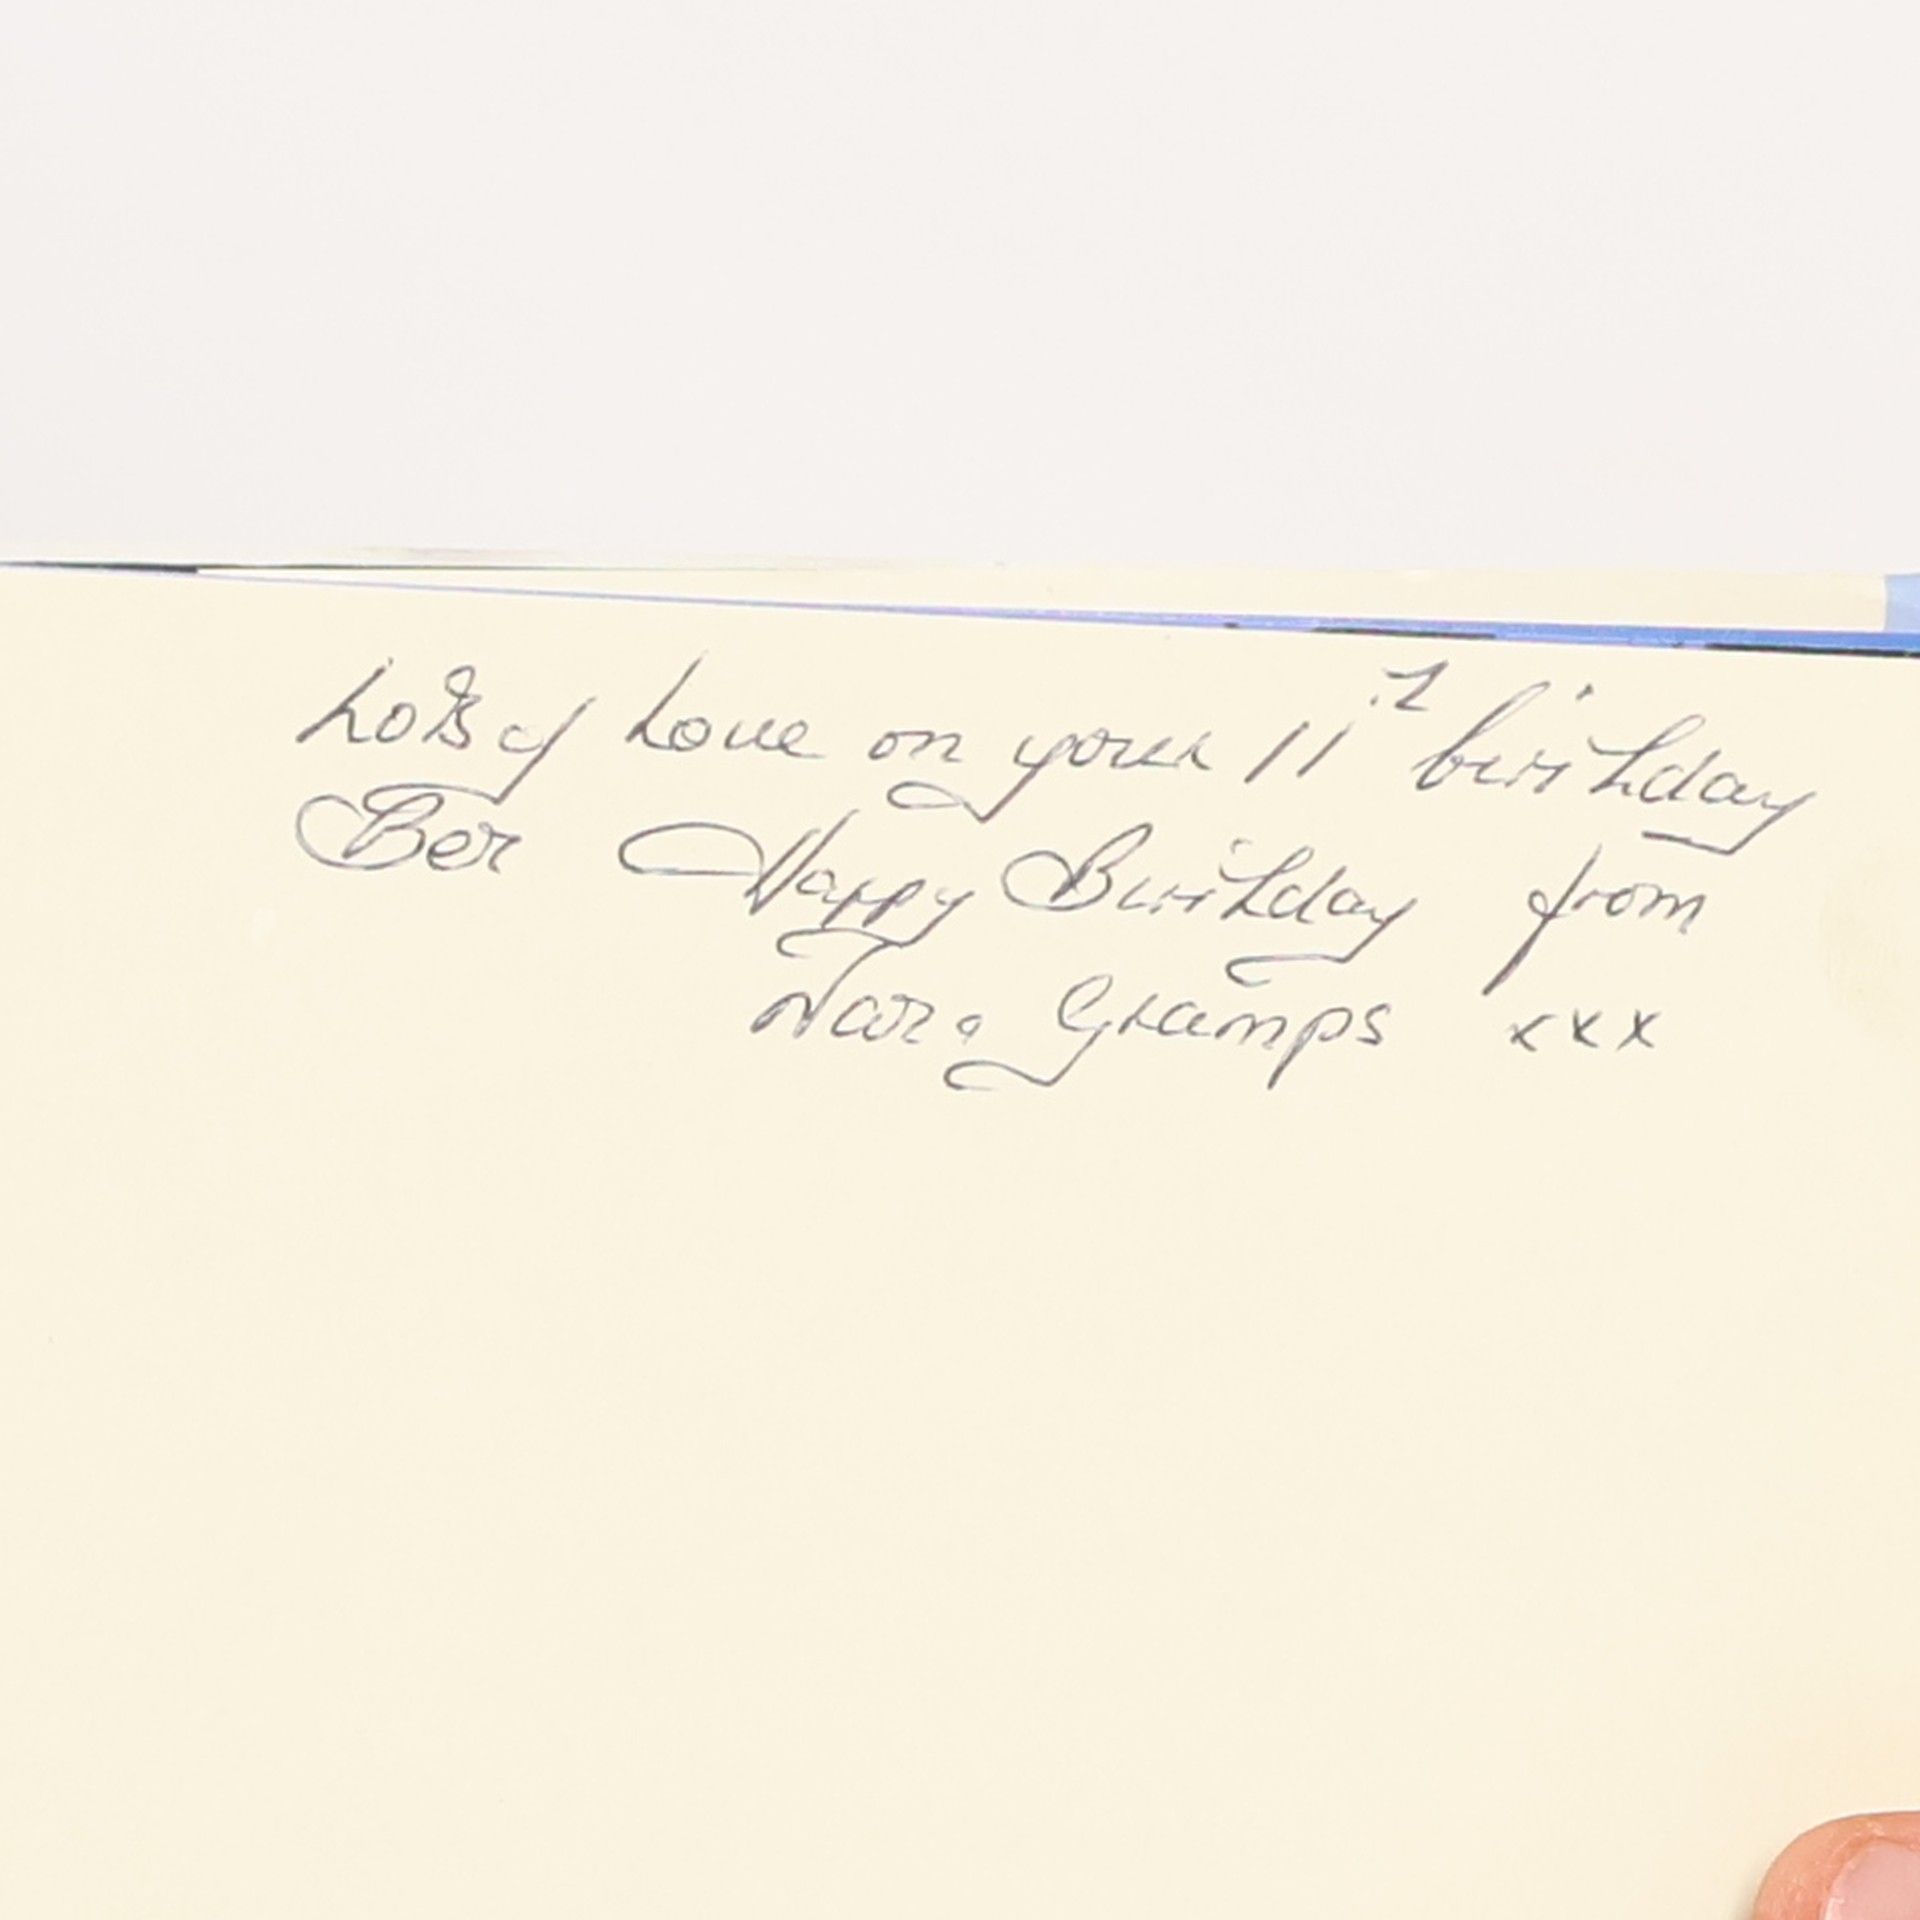 Lots of Love on your 11th birthday
Ben Happy Birthday from
Nan & Gramps xxx